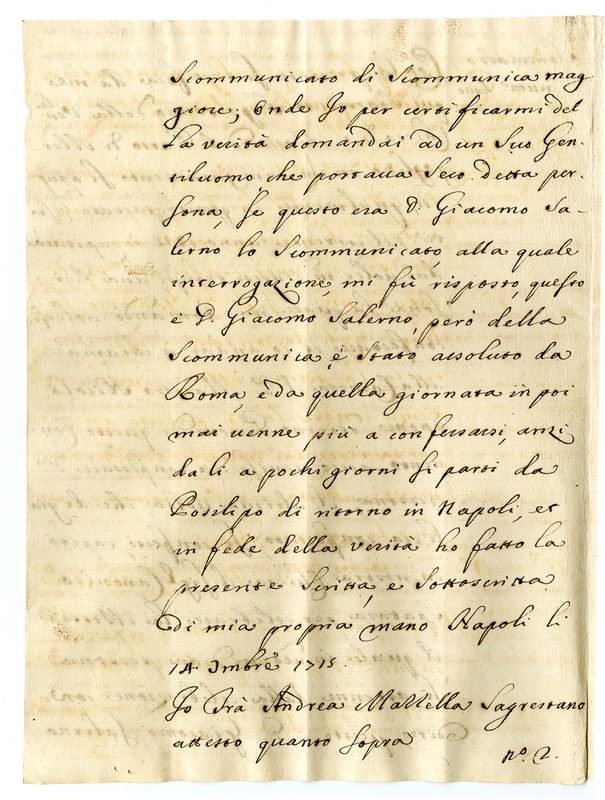 Scommunicato di Scommunica mag
giore; Onde Jo per certificarmi del
la verità domandai ad un Suo Gen-
tiluomo, che portaua Seco detta per-
sona, se questo era D. Giacomo Sa-
lerno lo Scommunicato, alla quale
interrogazione, mi fù risposto, questo
è D. Giacomo Salerno, però della
Scommunica, è Stato assoluto da
Roma, e da quella giornata in poi
mai uenne più a confessarsi, anzi
da li a pochi giorni si parti da
Posilipo di ritorno in Napoli, et
in fede della verità ho fatto la
presente Scritta, e Sottoscritta
di mia propria mano Napoli li
14. Xmbre 1715.
Jo Frà Andrea Mattella Sagrestano
attesto quanto sopra
nº. 2.